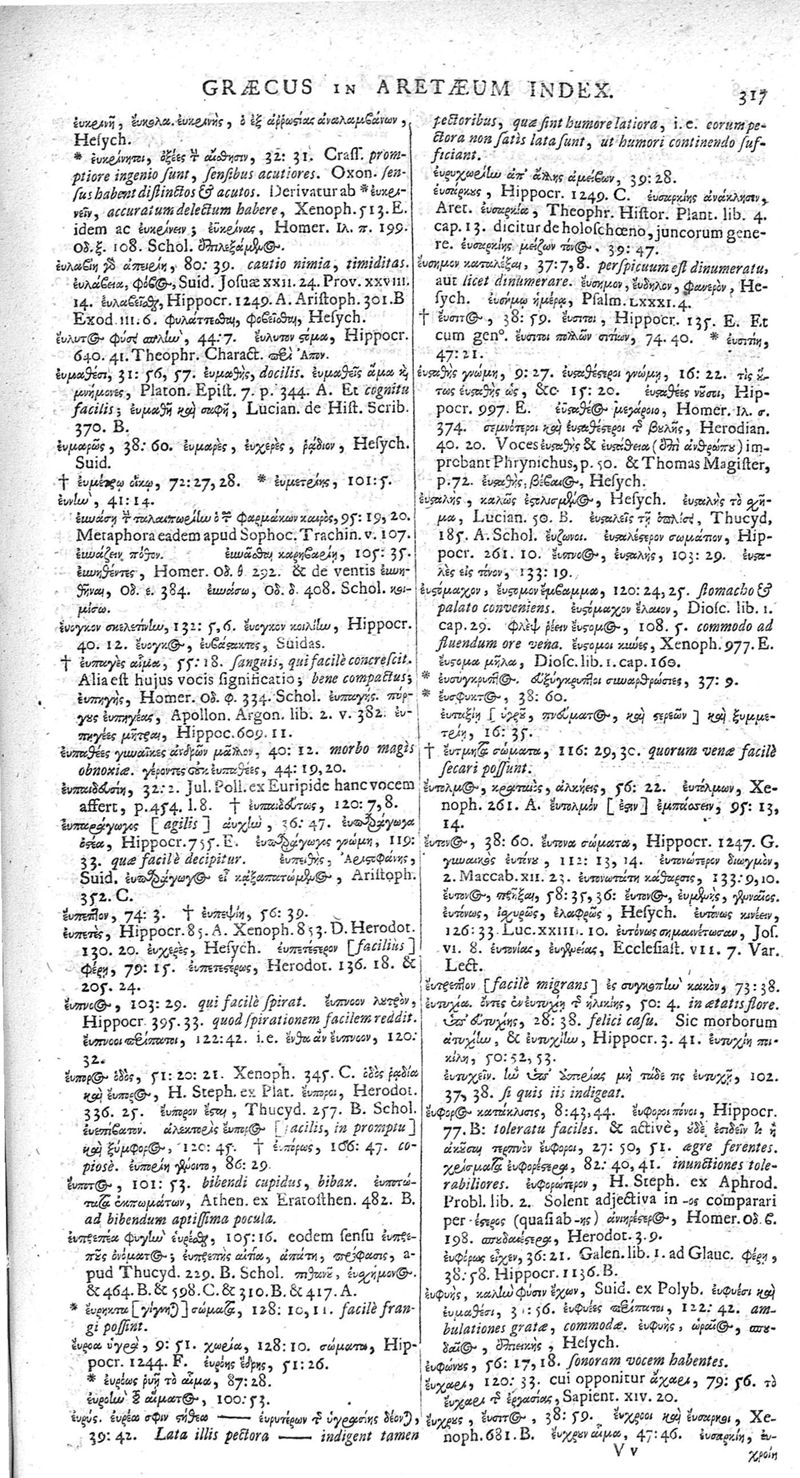 GRÆCUS IN ARETÆUM INDEX. 317
εὐκρινῆ, εὔκολα. εὐκρινὴς, ὁ ἐξ ἀῤῥωστίας ἀναλαμβάνων,
Hesych.
* εὐκρίνηται, ὀξέες τ̃ αἴσθησιν, 32: 31. Crass. prom-
ptiore ingenio sunt, sensibus acutiores. Oxon. sen-
sus habent distinctos & acutos. Derivatur ab * εὐκρι-
νεῖν, accuratum delectum habere, Xenoph. 513. E.
idem ac εὐκρίνειν; εὐκρίνας, Homer. Ιλ. π. 199.
Οδ. ξ. 108. Schol. ἐπιλεξάμενος.
εὐλαβείη ἀπειρίη, 80: 39. cautio nimia, timiditas.
εὐλάβεια, φόβος, Suid. Josuæ XXII. 24. Prov. XXVIII.
14. εὐλαβεῖσθαι, Hippocr. 1249. A. Aristoph. 301. B
Exod. III. 6. φυλάττεσθαι, φοβεῖσθαι, Hesych.
εὔλυτος φύσις, 44: 7. εὔλυτον στόμα, Hippocr.
640. 41. Theophr. Charact. περὶ Ἀπον.
εὐμαθέσι, 31: 56, 57. εὐμαθὴς, docilis. εὐμαθεῖς ἅμα καὶ
μνήμονες, Platon. Epist. 7. p. 344. A. Et cognitu
facilis; εὐμαθῆ καὶ σαφῆ, Lucian. de Hist. Scrib.
370. B.
εὐμαρῶς, 38: 60. εὐμαρὲς, εὐχερὲς, ῥᾴδιον, Hesych.
Suid.
† εὐμέτρῳ οἴκῳ, 72: 27, 28. * εὐμετρίης, 101: 5.
εὐνίω, 41: 14.
εὐνάσῃ τ̃ ταλαιπωρίω ὁ τ̃ φαρμάκων καιρὸς, 95: 19, 20.
Metaphora eadem apud Sophoc. Trachin. v. 107.
εὐνάζειν πόθον. εὐνᾶσθαι καρηβαρίη, 105: 35.
εὐνηθέντες, Homer. Οδ. θ. 292. & de ventis εὐνη-
θῆναι, Οδ. ε. 384. εὐνάσω, Οδ. δ. 408. Schol. κοι-
μίσω.
εὔογκον σκελετίω, 132: 5, 6. εὔογκον κοιλίω, Hippocr.
40. 12. εὔογκος, εὐβάστακτος, Suidas.
† εὐπαγὲς αἷμα, 55: 18. sanguis, qui facilè concrescit.
Alia est hujus vocis significatio; bene compactus;
εὐπηγὴς, Homer. Οδ. φ. 334. Schol. εὐπαγής. πύρ-
γους εὐπηγέας, Apollon. Argon. lib. 2. v. 382. εὐ-
πηγέες μῆτραι, Hippoc. 609. 11.
εὐπαθέες γυναῖκες ἀνδρῶν μᾶλλον, 40: 12. morbo magis
obnoxiæ. γέροντες οὐκ εὐπαθέες, 44: 19, 20.
εὐπαιδευσίη, 32: 2. Jul. Poll. ex Euripide hanc vocem
affert, p. 454. l. 8. † εὐπαιδεύτως, 120: 7, 8.
εὐπαράγωγος [agilis] αὐχὴν, 36: 47. εὐπαράγωγα
ὀστέα, Hippocr. 755. E. εὐπαράγωγος γνώμη, 119:
33. quæ facilè decipitur. εὐπειθὴς, Ἀριστοφάνης,
Suid. εὐπαράγωγος εἶ κἀξαπατώμενος, Aristoph.
352. C.
εὔπεπτον, 74: 3. † εὐπεψίη, 56: 39.
εὐπετὲς, Hippocr. 85. A. Xenoph. 853. D. Herodot.
130. 20. εὐχερὲς, Hesych. εὐπετέστερον [facilius]
φέρῃ, 79: 15. εὐπετεστέρως, Herodot. 136. 18. &
205. 24.
εὔπνοος, 103: 29. qui facilè spirat. εὔπνοον λουτρὸν,
Hippocr 395. 33. quod spirationem facilem reddit.
εὔπνοοι περίπατοι, 122: 42. i.e. ἔνθα ἂν εὔπνοον, 120:
32.
εὔπορος ὁδὸς, 51: 20: 21. Xenoph. 345. C. ὁδὸς ῥᾳδία
καὶ εὔπορος, H. Steph. ex Plat. εὔποροι, Herodot.
336. 25. εὔπορον ἔσται, Thucyd. 257. B. Schol.
εὐεπίβατον. ἀλεκτορὶς εὔπορος [facilis, in promptu]
καὶ ξύμφορος, 120: 45. † εὐπόρως, 106: 47. co-
piosè. εὐπορίη γένοιτο, 86: 29.
εὔποτος, 101: 53. bibendi cupidus, bibax. εὐποτώ-
τατα ἐκπωμάτων, Athen. ex Eratosthen. 482. B.
ad bibendum aptissima pocula.
εὐπρεπέα φυγὴν εὑρέσθαι, 105: 16. eodem sensu εὐπρε-
ποῦς ὀνόματος; εὐπρεπὴς αἰτία, ἀπάτη, πρόφασις, a-
pud Thucyd. 229. B. Schol. πιθανὴ, εὐσχήμονος.
& 464. B. & 598. C. & 310. B. & 417. A.
* εὔρηκτα [γίγνεται] σώματα, 128: 10, 11. facilè fran-
gi possint.
εὔροα ὑγρὰ, 9: 51. χωρία, 128: 10. σώματα, Hip-
pocr. 1244. F. εὐρόης ἕδρης, 51: 26.
* εὐρέως ῥυῇ τὸ αἷμα, 87: 28.
εὔροιαν αἵματος, 100: 53.
εὐρύς. εὐρέα σφιν στήθεα —— εὐρυτέρων τ̃ ὑγρασίης δέονται,
39: 42. Lata illis pectora —— indigent tamen
pectoribus, quæ sint humore latiora, i.e. eorum pe-
ctora non satis lata sunt, ut humori continendo suf-
ficiant.
εὐρυχωρίω ἀπ' ἄλλης ἀμείβων, 39: 28.
εὔσαρκος, Hippocr. 1249. C. εὐσαρκίης ἀνάκλησιν,
Aret. εὐσαρκία, Theophr. Histor. Plant. lib. 4.
cap. 13. dicitur de holoschœno, juncorum gene-
re. εὐσαρκίης μείζων τόνος. 39: 47.
εὔσημον καταλέξαι, 37: 7, 8. perspicuum est dinumeratu,
aut licet dinumerare. εὔσημον, εὔδηλον, φανερὸν, He-
sych. εὐσήμῳ ἡμέρᾳ, Psalm. LXXXI. 4.
† εὔσιτος, 38: 59. εὔσιτοι, Hippocr. 135. E. Et
cum gen°. εὔσιτοι πολλῶν σιτίων, 74. 40. * εὐσιτίη,
47: 21.
εὐσταθὴς γνώμη, 9: 27. εὐσταθέστεροι γνώμην, 16: 22. τίς οὕ-
τως εὐσταθὴς ὡς, &c. 15: 20. εὐσταθέες νοῦσοι, Hip-
pocr. 997. E. ἐϋσταθέος μεγάροιο, Homer. Ιλ. σ.
374. σεμνότεροι καὶ εὐσταθέστεροι τ̃ βουλῆς, Herodian.
40. 20. Voces εὐσταθὴς & εὐστάθεια (ἐπὶ ἀνθρώπου) im-
probant Phrynichus, p. 50. & Thomas Magister,
p. 72. εὐσταθὴς, βέβαιος, Hesych.
εὐσταλὴς, καλῶς ἐσταλμένος, Hesych. εὐσταλὴς τὸ σχῆ-
μα, Lucian. 50. B. εὐσταλεῖς τῇ ὁπλίσει, Thucyd,
185. A. Schol. εὔζωνοι. εὐσταλέστερον σωμάτιον, Hip-
pocr. 261. 10. εὔπνοος, εὐσταλὴς, 103: 29. εὐστα-
λὲς εἰς πόνον, 133: 19.
εὐστόμαχον, εὔστομον ἔμβαμμα, 120: 24, 25. stomacho &
palato conveniens. εὐστόμαχον ἔλαιον, Diosc. lib. 1.
cap. 29. φλὲψ ῥέειν εὔστομος, 108: 5. commodo ad
fluendum ore vena. εὔστομοι κύνες, Xenoph. 977. E.
εὔστομα μῆλα, Diosc. lib. 1. cap. 160.
* εὐσύγκρυπτος. εὐξύγκρυπτοι συναρθρώσιες, 37: 9.
* εὔσφυκτος, 38: 60.
εὐταξίη [ὑγροῦ, πνεύματος, καὶ στερεῶν] καὶ ξυμμε-
τρίη, 16: 35.
† εὔτμητα σώματα, 116: 29, 30. quorum venæ facilè
secari possunt.
εὔτολμος, κραταιὸς, ἀλκήεις, 56: 22. εὐτόλμων, Xe-
noph. 261. A. εὔτολμόν [ἐστιν] ἐμπάσσειν, 95: 13,
14.
εὔτονος, 38: 60. εὔτονα σώματα, Hippocr. 1247. G.
γυναικὸς εὐτόνου, 112: 13, 14. εὐτονώτερον διωγμὸν,
2. Maccab. XII. 23. εὐτονωτάτη κάθαρσις, 133: 9, 10.
εὔτονος, πρῆξαι, 58: 35, 36: εὔτονος, εὐμεγέθης, γενναῖος.
εὐτόνως, ἰσχυρῶς, ἐλαφρῶς, Hesych. εὐτόνως κινέειν,
126: 33 Luc. XXIII. 10. εὐτόνως σημαινέτωσαν, Jos.
VI. 8. εὐτονίας, εὐγενείας, Ecclesiast. VII. 7. Var.
Lect.
εὔτρεπτον [facilè migrans] ἐς συγκοπὴν κακὸν, 73: 38.
εὐτυχία. ὄντες ἐν εὐτυχίῃ τ̃ ἡλικίης, 50: 4. in ætatis flore.
ὑπ' εὐτυχίης, 28: 38. felici casu. Sic morborum
ἀτυχίω, & εὐτυχίω, Hippocr. 3. 41. εὐτυχίη ποι-
κίλη, 50: 52, 53.
εὐτυχεῖν. ἢν ὑπ' ἀπορίας μὴ τάδε τις εὐτυχῇ, 102.
37, 38. si quis iis indigeat.
εὔφορος κατάκλισις, 8: 43, 44. εὔφοροι πόνοι, Hippocr.
77. B: toleratu faciles. & activè, οὐδὲ ἐσιδεῖν ἢ
ἀκοῦσαι τερπνὸν εὔφοροι, 27: 50, 51. ægre ferentes.
χρίσματα εὐφορέστερα, 82: 40, 41. inunctiones tole-
rabiliores. εὐφορώτερον, H. Steph. ex Aphrod.
Probl. lib. 2. Solent adjectiva in -ος comparari
per -έστερος (quasi ab -ης) ἀνιηρέστερος, Homer. Οδ. β.
198. σπουδαιέστερος, Herodot. 3. 9.
εὐφόρως εἶχεν, 36: 21. Galen. lib. 1. ad Glauc. φέρῃ,
38: 58. Hippocr. 1136. B.
εὐφυὴς, καλὴν φύσιν ἔχων, Suid. ex Polyb. εὐφυέσι καὶ
εὐμαθέσι, 31: 56. εὐφυέες περίπατοι, 122: 42. am-
bulationes gratæ, commodæ. εὐφυὴς, ὡραῖος, σπου-
δαῖος, Hesych.
εὐφώνους, 56: 17, 18. sonoram vocem habentes.
εὔχαρι, 120: 33. cui opponitur ἄχαρι, 79: 56. τὸ
εὔχαρι τ̃ ἐργασίας, Sapient. XIV. 20.
εὔχρους, εὔσιτος, 38: 59. εὔχροοι καὶ εὔσαρκοι, Xe-
noph. 681. B. εὔχρουν αἷμα, 47: 46. εὐσαρκίη, εὐ-
V v
χροίη